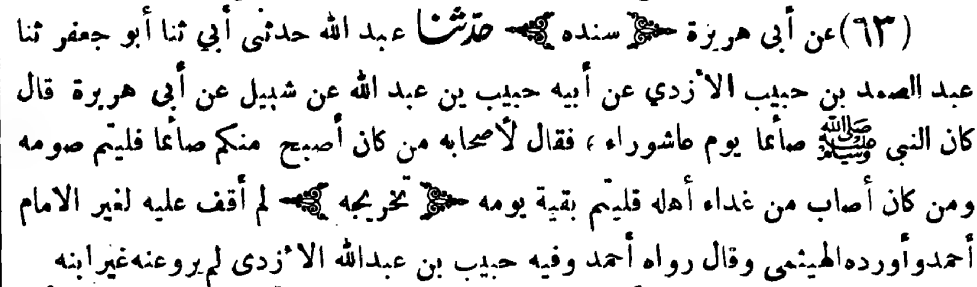 (٦٣) عن أبى هريرة ﴿ سنده ﴾ حدّثنا عبد الله حدثنى أبي ثنا أبو جعفر ثنا
عبد الصمد بن حبيب الأزدي عن أبيه حبيب بن عبد الله عن شبيل عن أبى هريرة قال
كان النبى ﷺ صائما يوم عاشوراء ، فقال لأصحابه من كان أصبح منكم صائما فليتم صومه
ومن كان أصاب من غداء أهله فليتم بقية يومه ﴿ تخريجه ﴾ لم أقف عليه لغير الامام
أحمد وأورده الهيثمى وقال رواه أحمد وفيه حبيب بن عبدالله الأزدى لم يروعنه غير ابنه